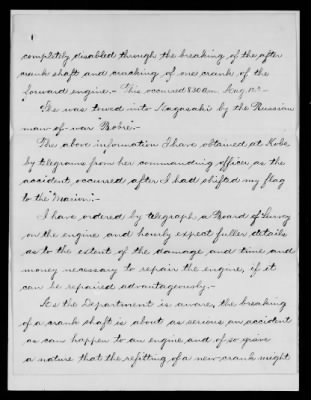 completely disabled through the breaking of the after
crank shaft and cracking of one crank of the
forward engine.- This occurred 8.30 a.m. Aug. 12.-
She was towed into Nagasaki by the Russian
man-of-war "Bobre".-
The above information I have obtained at Kobe
by telegrams from her commanding officer, as the
accident occurred after I had shifted my flag
to the "Marion".-
I have ordered by telegraph a Board of Survey
on the engine and hourly expect fuller details
as to the extent of the damage and time and
money necessary to repair the engine, if it
can be repaired advantageously.-
As the Department is aware, the breaking
of a crank shaft is about as serious an accident
as can happen to an engine and of so grave
a nature that the refitting of a new crank might